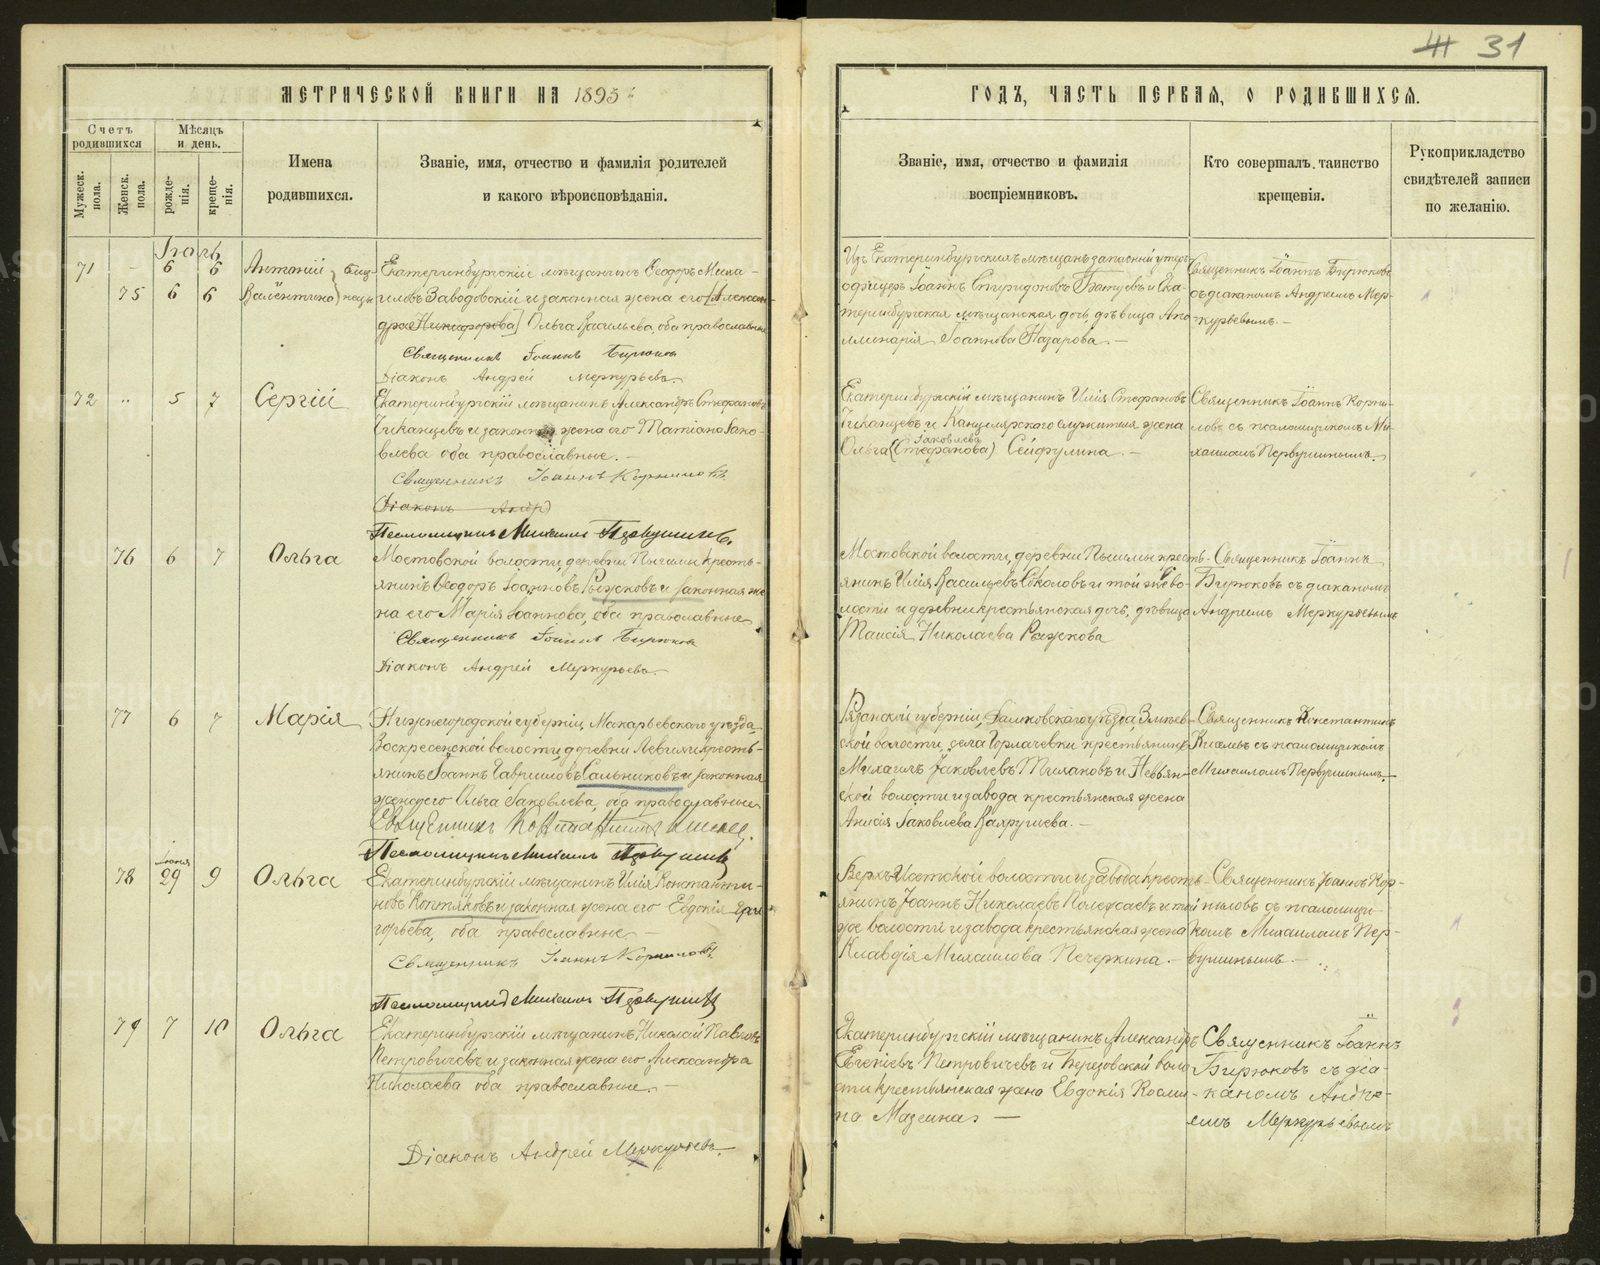 31
МЕТРИЧЕСКОЙ КНИГИ НА 1895
ГОДЪ, ЧАСТЬ ПЕРВАЯ, О РОДИВШИХСЯ.
Счетъ родившихся
Мужеск. пола.
Женск. пола.
Мѣсяцъ и день.
рожде-нія.
креще-нія.
Имена
родившихся.
Званіе, имя, отчество и фамилія родителей
и какого вѣроисповѣданія.
Званіе, имя, отчество и фамилія
воспріемниковъ.
Кто совершалъ таинство
крещенія.
Рукоприкладство
свидѣтелей записи
по желанію.
Іюль
71 - 6 6 Антоній
75 6 6 Валентина
близ-
нецы
Екатеринбургскій мѣщанинъ Ѳеодоръ Миха-
иловъ Заводовскій и законная жена его [Алексан-
дра Никифорова] Ольга Васильева, оба православные
Священникъ Іоаннъ Бирюковъ
Діаконъ Андрей Меркурьевъ.
Изъ Екатеринбургскихъ мѣщанъ запасный унтеръ
офицеръ Іоаннъ Спиридоновъ и Ека-
теринбургская мѣщанская дочь, дѣвица Апо-
ллинарія Іоаннова Назарова. —
Священникъ Іоаннъ Бирюковъ
съ діакономъ Андреемъ Мер-
курьевымъ. —
72 " 5 7 Сергій
Екатеринбургскій мѣщанинъ Александръ Стефановъ
Чиканцевъ и законная жена его Татіана Іако-
влева оба православные. —
Священникъ Іоаннъ Корниловъ
Діаконъ Андр
Псаломщикъ Михаилъ Первушинъ.
Екатеринбургскій мѣщанинъ Илія Стефановъ
Чиканцевъ и Канцелярского служителя жена
Іаковлева
Ольга (Стефанова) Сейфулина. —
Священникъ Іоаннъ Корни-
ловъ съ псаломщикомъ Ми-
хаиломъ Первушинымъ. —
76 6 7 Ольга
Мостовской волости, деревни Пышмы кресть-
янинъ Ѳеодоръ Іоанновъ Рыжковъ и законная же
на его Марія Іоаннова, оба православные
Священникъ Іоаннъ Бирюковъ
Діаконъ Андрей Меркурьевъ. —
Мостовской волости, деревни Пышмы кресть-
янинъ Илія Васильевъ Соколовъ и той же во-
лости и деревни крестьянская дочь, дѣвица
Таисія Николаева Рыжкова
Священникъ Іоаннъ
Бирюковъ съ діакономъ
Андреемъ Меркурьевымъ
77 6 7 Марія
Нижегородской губерніи, Макарьевского уѣзда,
Воскресенской волости, деревни кресть-
янинъ Іоаннъ Гавриловъ Сальниковъ и законная
жена его Ольга Іаковлева, оба православные
Священникъ Константинъ
Псаломщикъ Михаилъ Первушинъ
Рязанской губерніи, уѣзда,
ской волости, села Горлачевки крестьянинъ
Михаилъ Іаковлевъ и Невьян-
ской волости и завода крестьянская жена
Анисія Іаковлева
Священникъ Константинъ
съ псаломщикомъ
Михаиломъ Первушинымъ. —
78 Іюня 29 9 Ольга
Екатеринбургскій мѣщанинъ Илія Константи-
новъ и законная жена его Евдокія Гри-
горьева, оба православные —
Священникъ Іоаннъ Корниловъ
Псаломщикъ Михаилъ Первушинъ
Верхъ-Исетской волости и завода кресть-
янинъ Іоаннъ Николаевъ и той
же волости и завода крестьянская жена
Клавдія Михаилова Печеркина. —
Священникъ Іоаннъ Кор-
ниловъ съ псаломщи-
комъ Михаиломъ Пер-
вушинымъ. —
79 7 10 Ольга
Екатеринбургскій мѣщанинъ Николай Павловъ
Петровичевъ и законная жена его Александра
Николаева оба православные. —
Діаконъ Андрей Меркурьевъ. —
Екатеринбургскій мѣщанинъ Александръ
Евгеніевъ Петровичевъ и Березовской воло
сти крестьянская жена Евдокія Косми-
на Мазеина. —
Священникъ Іоаннъ
Бирюковъ съ діа-
кономъ Андре-
емъ Меркурьевымъ
METRIKI.GASO-URAL.RU